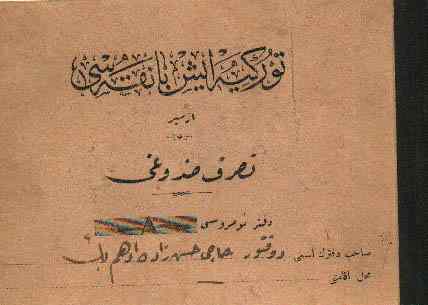 توركیه ایش بانقه سی
ازمیر
تصرف صندوغی
دفتر نومروسی ٨
صاحب دفترك اسمی دوقتور حاجی حسن زاده ادهم بك
محل اقامتی